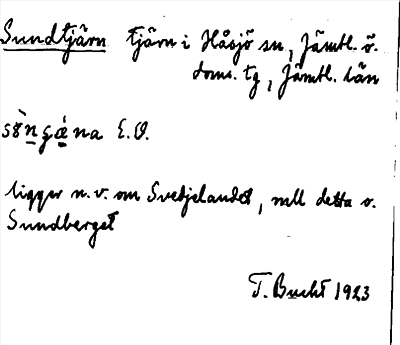 Sundtjärn tjärn i Håsjö sn, Jämtl. ö.
doms. tg, Jämtl. län
E.O.
ligger n.v. om Svedjelandet, mll detta o.
Sundberget
T. Bucht 1923